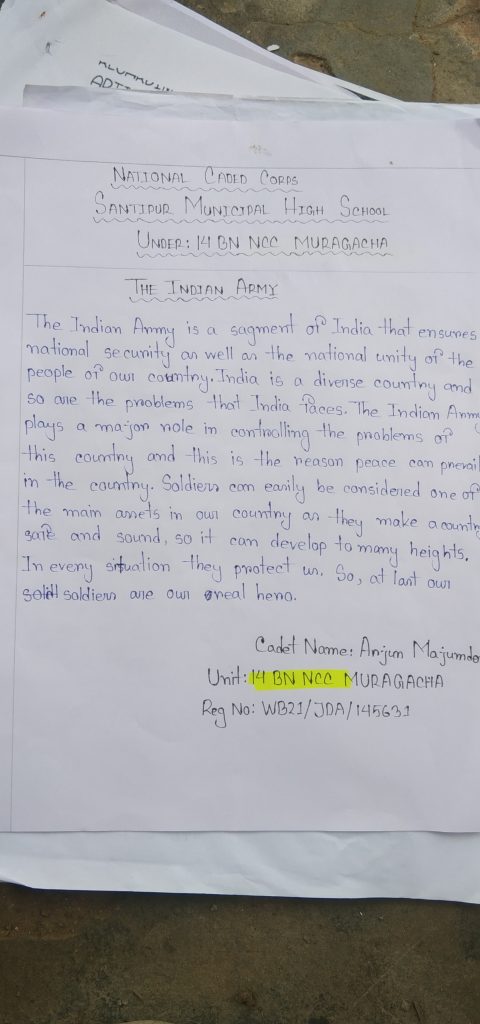 ADT
NATIONAL CADED CORPS
SANTIPUR MUNICIPAL HIGH SCHOOL
UNDER: 14 BN NCC MURAGACHA
THE INDIAN ARMY
The Indian Army is a sagment of India that ensures
national security as well as the national unity of the
people of our country. India is a diverse country and
so are the problems that India faces. The Indian Army
plays a major role in controlling the problems of
this country and this is the reason peace can prevail
in the country. Soldiers can easily be considered one of
the main assets in our country as they make a country
safe and sound, so it can develop to many heights.
In every situation they protect us. So, at last our
soldiers are our real hero.
Cadet Name: Arjun Majumda
Unit: 14 BN NCC MURAGACHA
Reg No: WB21/JDA/145631